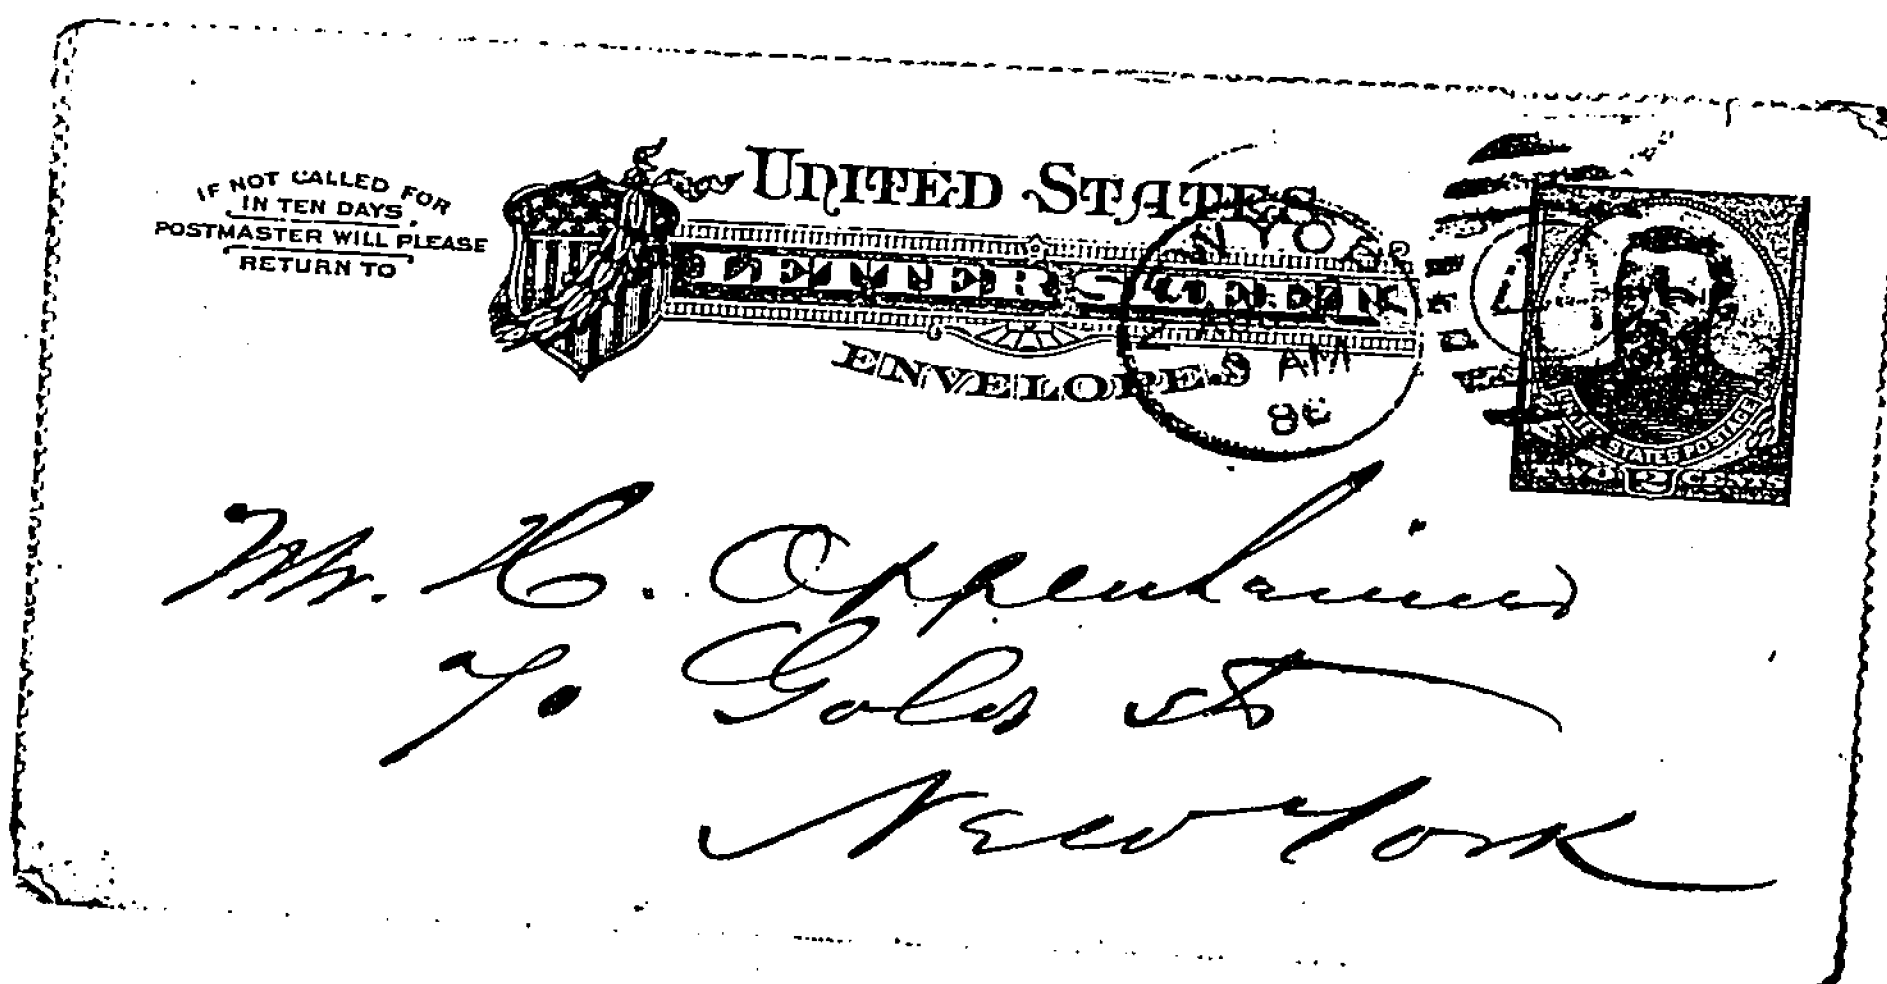 IF NOT CALLED FOR
IN TEN DAYS,
POSTMASTER WILL PLEASE
RETURN TO
UNITED STATES
LETTER SHEET
ENVELOPE.
N YORK
8 AM
UNITED STATES POSTAGE
TWO 2 CENTS
Mr. H. Oppenheimer
70 Gold St
New York